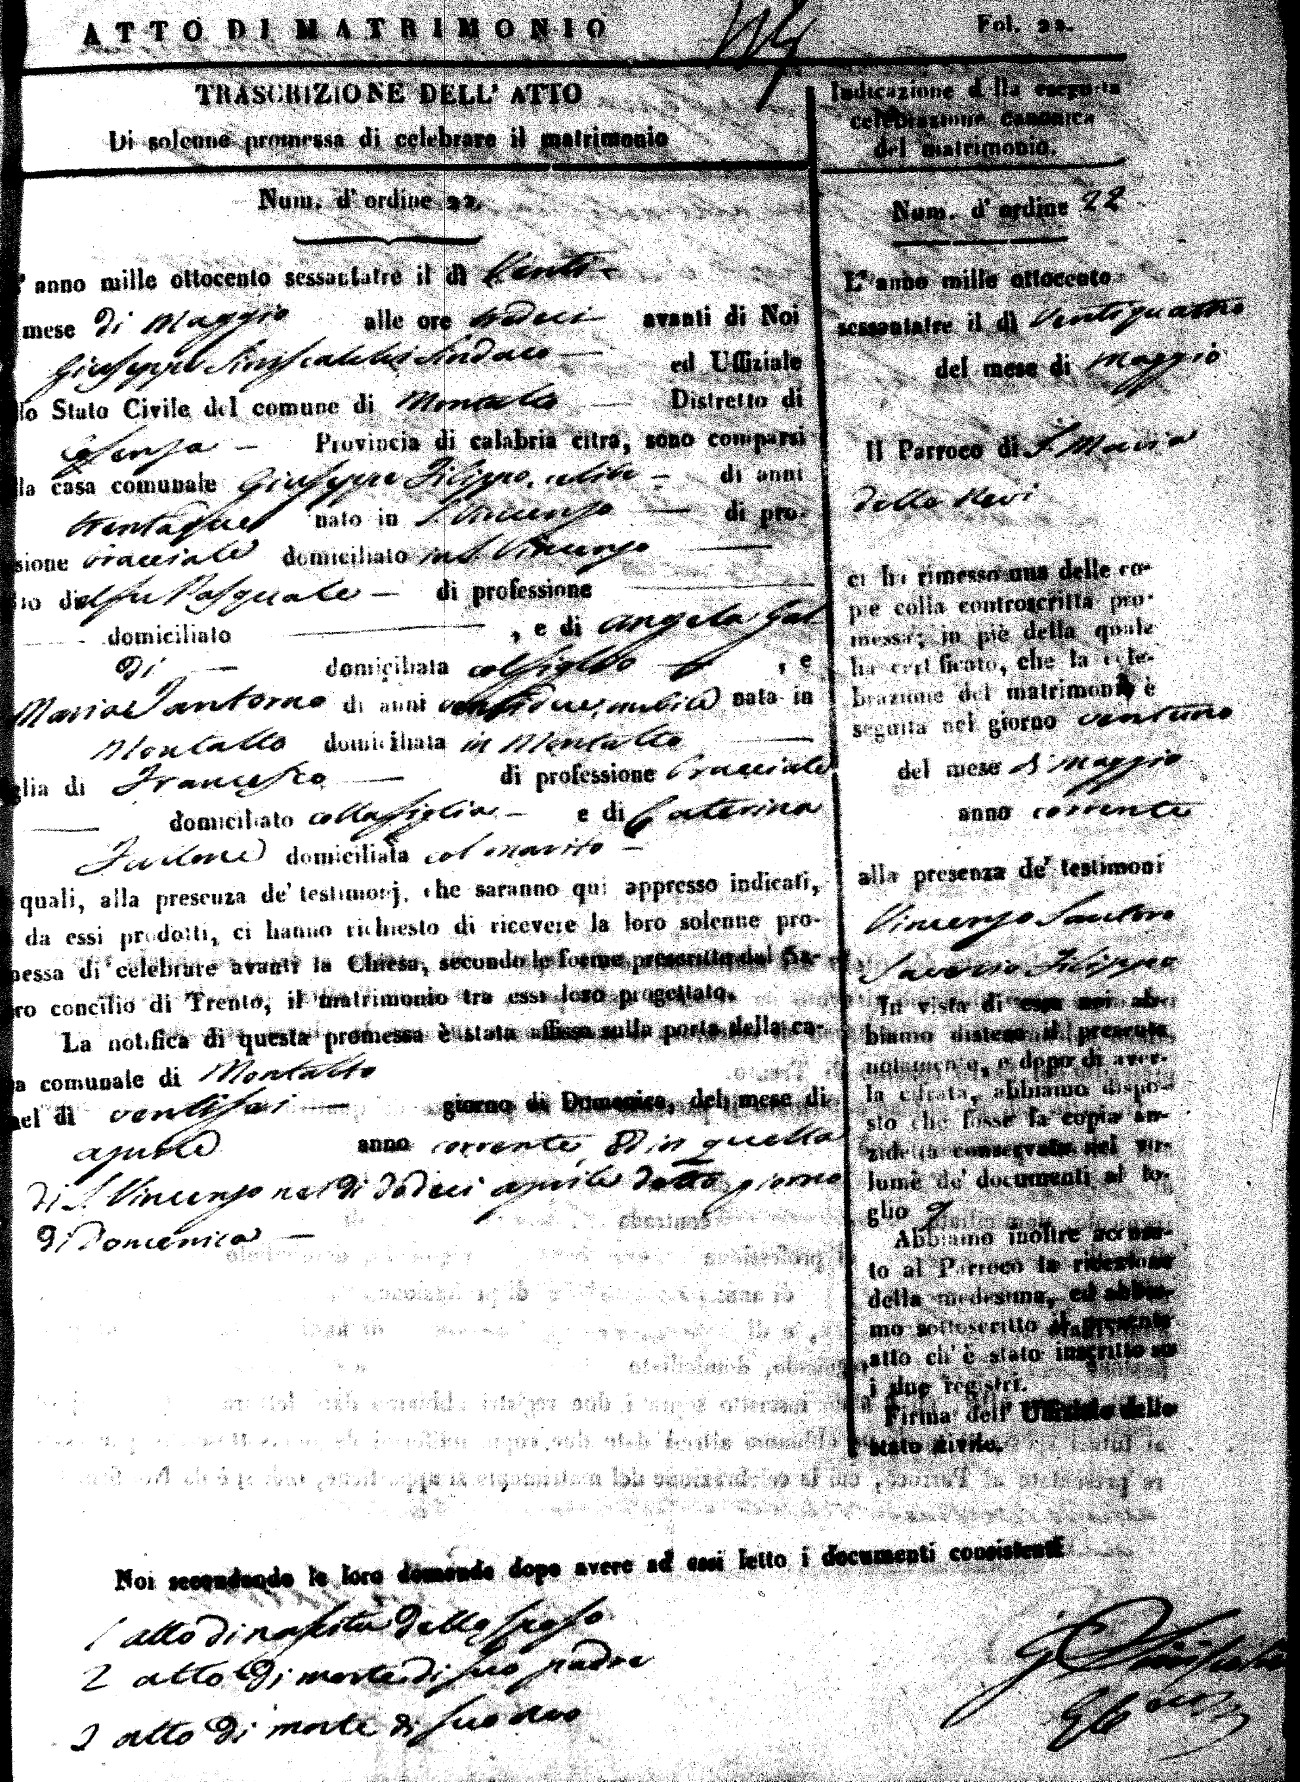 ATTO DI MATRIMONIO
Fol. 22.
TRASCRIZIONE DELL' ATTO
Di solenne promessa di celebrare il matrimonio
Num. d' ordine 22.
' anno mille ottocento sessantatre il dì Venti
mese di Maggio alle ore avanti di Noi
Giuseppe Siniscalchi Sindaco ed Uffiziale
lo Stato Civile del comune di Montalto Distretto di
Cosenza Provincia di calabria citra, sono comparsi
lla casa comunale Giuseppe Filippo, celibe di anni
trentadue nato in S. Vincenzo di pro-
sione bracciale domiciliato in S. Vincenzo
lio di del fu Pasquale di professione
domiciliato , e di Angela Gal
di domiciliata col figlio , e
Maria Santoro di anni ventidue, nubile nata in
Montalto domiciliata in Montalto
glia di Francesco di professione Bracciale
domiciliato colla figlia e di Caterina
domiciliata col marito
quali, alla presenza de' testimonj, che saranno qui appresso indicati,
da essi prodotti, ci hanno richiesto di ricevere la loro solenne pro-
messa di celebrare avanti la Chiesa, secondo le forme prescritte dal Sa-
ro concilio di Trento, il matrimonio tra essi loro progettato.
La notifica di questa promessa è stata affissa sulla porta della ca-
a comunale di Montalto
nel dì ventisei giorno di Domenica, del mese di
aprile anno corrente, ed in quella
di S. Vincenzo nel dì dodeci aprile detto giorno
di Domenica
Indicazione d lla eseguita
celebrazione canonica
del matrimonio.
Num. d' ordine 22
L' anno mille ottocento
sessantatre il dì Ventiquattro
del mese di Maggio
Il Parroco di S. Maria
della Nevi
ci ha rimesso una delle co-
pie colla controscritta pro-
messa; in piè della quale
ha certificato, che la cele-
brazione del matrimonio è
seguita nel giorno ventuno
del mese di Maggio
anno corrente
alla presenza de' testimoni
Vincenzo Santoro
Saverio Filippo
In vista di essa noi ab-
biamo disteso il presente
notamento, e dopo di aver-
la cifrata, abbiamo dispo-
sto che fosse la copia an-
zidetta conservata nel vo-
lume de' documenti al fo-
glio 9
Abbiamo inoltre accusa-
to al Parroco la ricezione
della medesima, ed abbia-
mo sottoscritto il presente
atto ch' è stato inscritto su
i due registri.
Firma dell' Uffiziale dello
stato civile.
Noi secondando le loro domande dopo avere ad essi letto i documenti consistenti
1 atto di nascita dello sposo
2 atto di morte di suo padre
3 atto di morte di suo avo